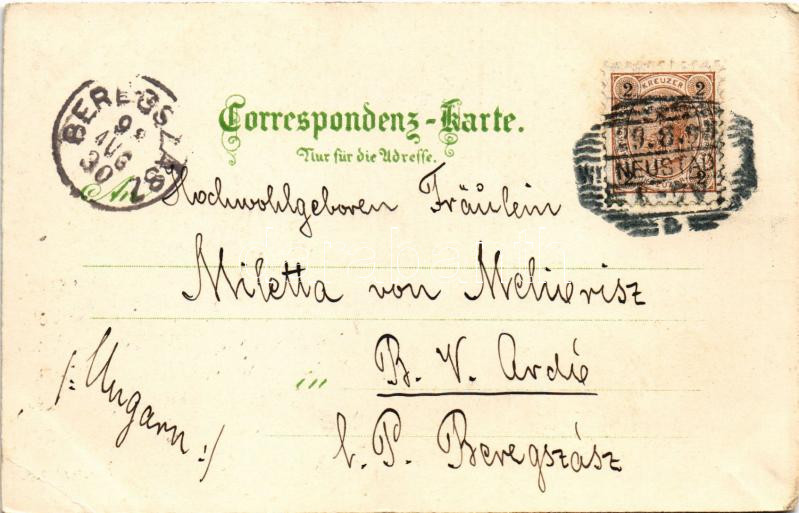 Correspondenz-Karte.
Nur für die Adresse.
An
Hochwohlgeboren Fräulein
Miletta von
in B. V. Ardó
l. P. Beregszász
/: Ungarn :/
2 KREUZER 2
NEUSTADT
AUG
30